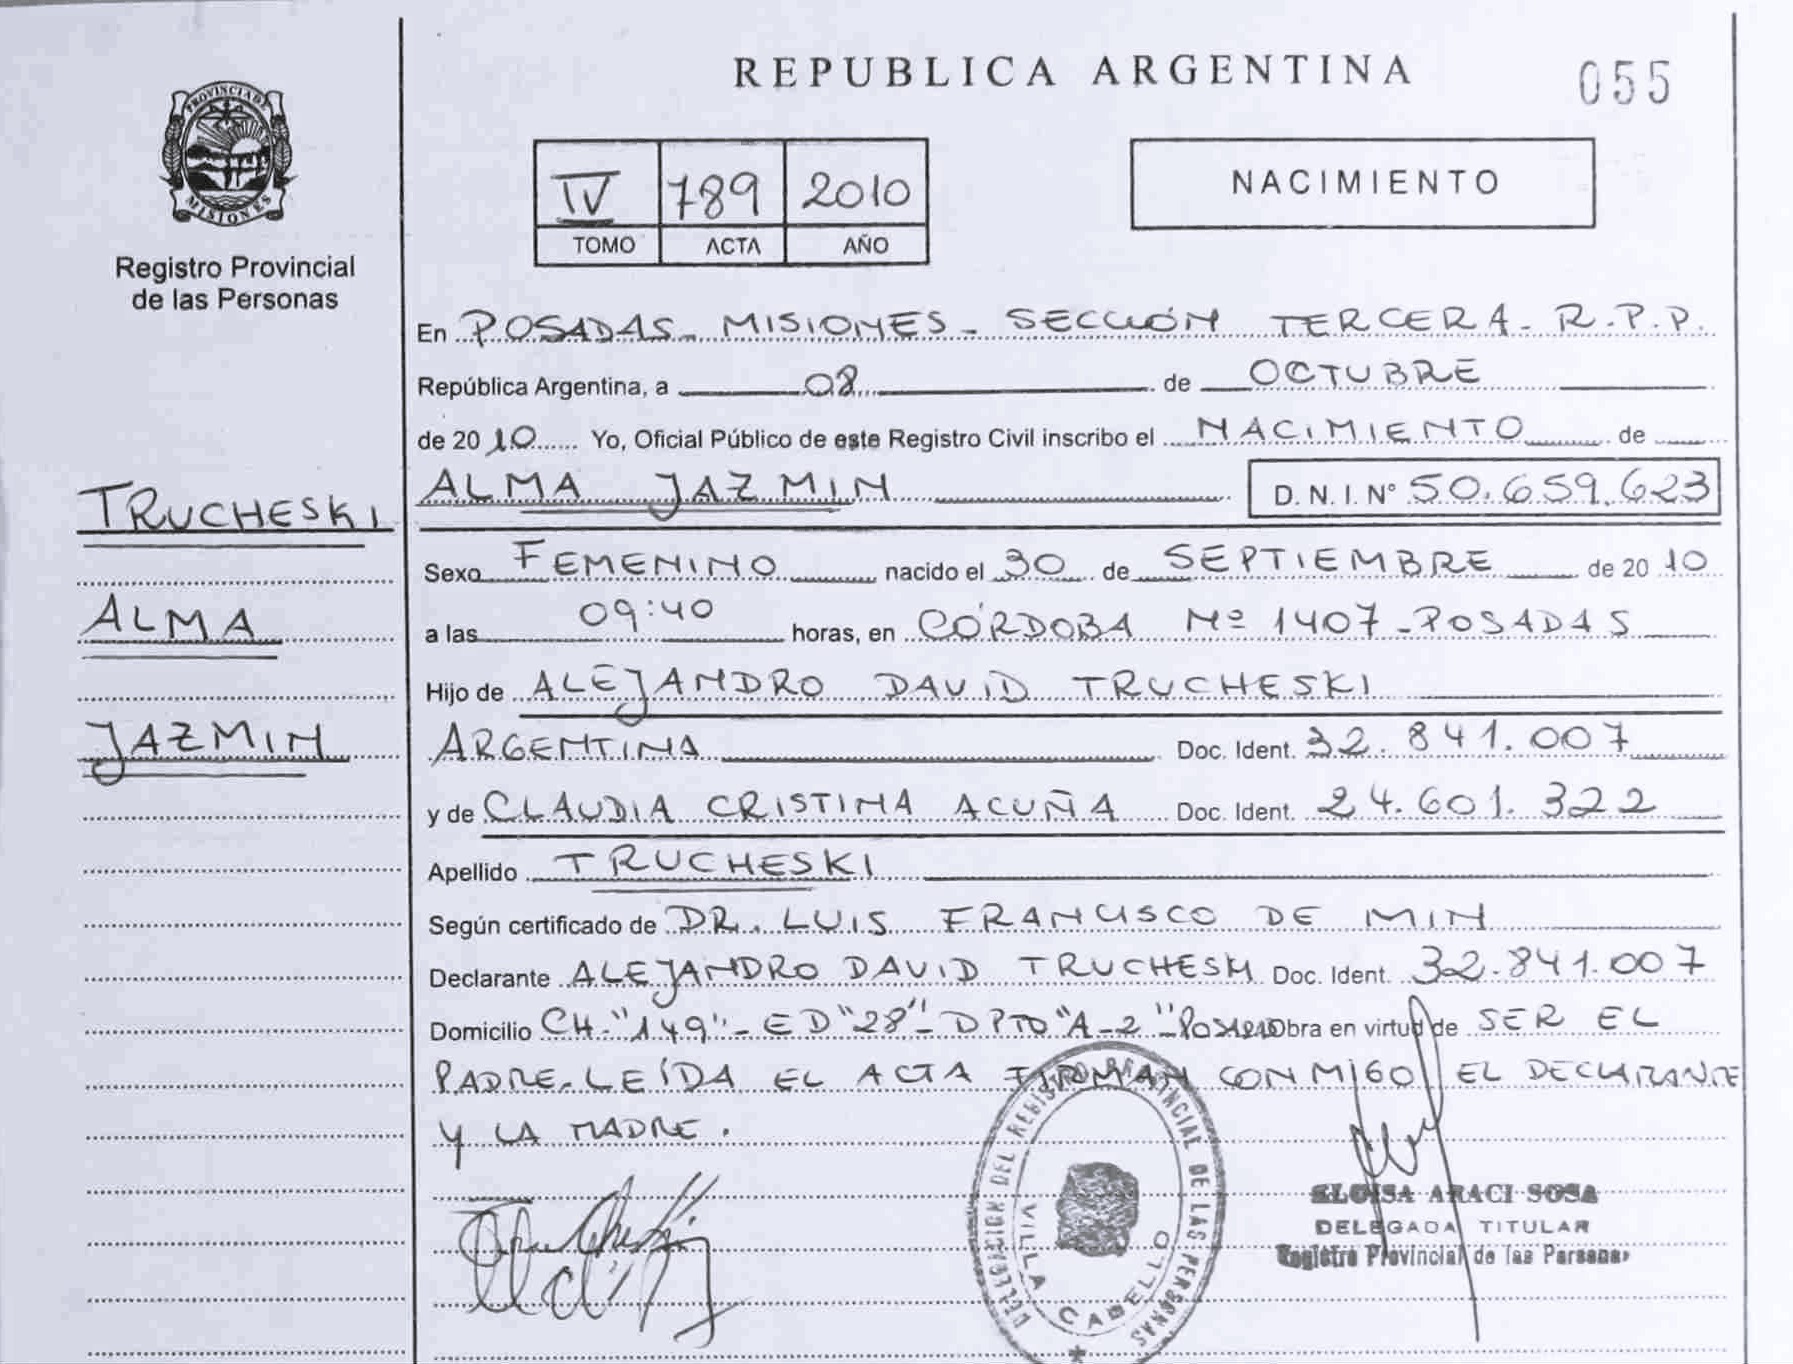 REPUBLICA ARGENTINA
055
PROVINCIA DE
MISIONES
Registro Provincial
de las Personas
IV 789 2010
TOMO ACTA AÑO
NACIMIENTO
En POSADAS - MISIONES - SECCIÓN TERCERA - R.P.P.
República Argentina, a 08 de OCTUBRE
de 2010 Yo, Oficial Público de este Registro Civil inscribo el NACIMIENTO de
ALMA JAZMIN D.N.I. N° 50.659.623
TRUCHESKI
ALMA
JAZMIN
Sexo FEMENINO nacido el 30 de SEPTIEMBRE de 2010
a las 09:40 horas, en CÓRDOBA Nº 1407 - POSADAS
Hijo de ALEJANDRO DAVID TRUCHESKI
ARGENTINA Doc. Ident. 32.841.007
y de CLAUDIA CRISTINA ACUÑA Doc. Ident. 24.601.322
Apellido TRUCHESKI
Según certificado de DR. LUIS FRANCISCO DE MIN
Declarante ALEJANDRO DAVID TRUCHESKI Doc. Ident. 32.841.007
Domicilio CH-"149"-ED"28"-DPTO"A-2"-POSADAS Obra en virtud de SER EL
PADRE-LEÍDA EL ACTA FIRMAN CONMIGO EL DECLARANTE
Y LA MADRE.
DELEGACION DEL REGISTRO PROVINCIAL DE LAS PERSONAS
VILLA CABELLO
ELOISA ARACI SOSA
DELEGADA TITULAR
Registro Provincial de las Personas